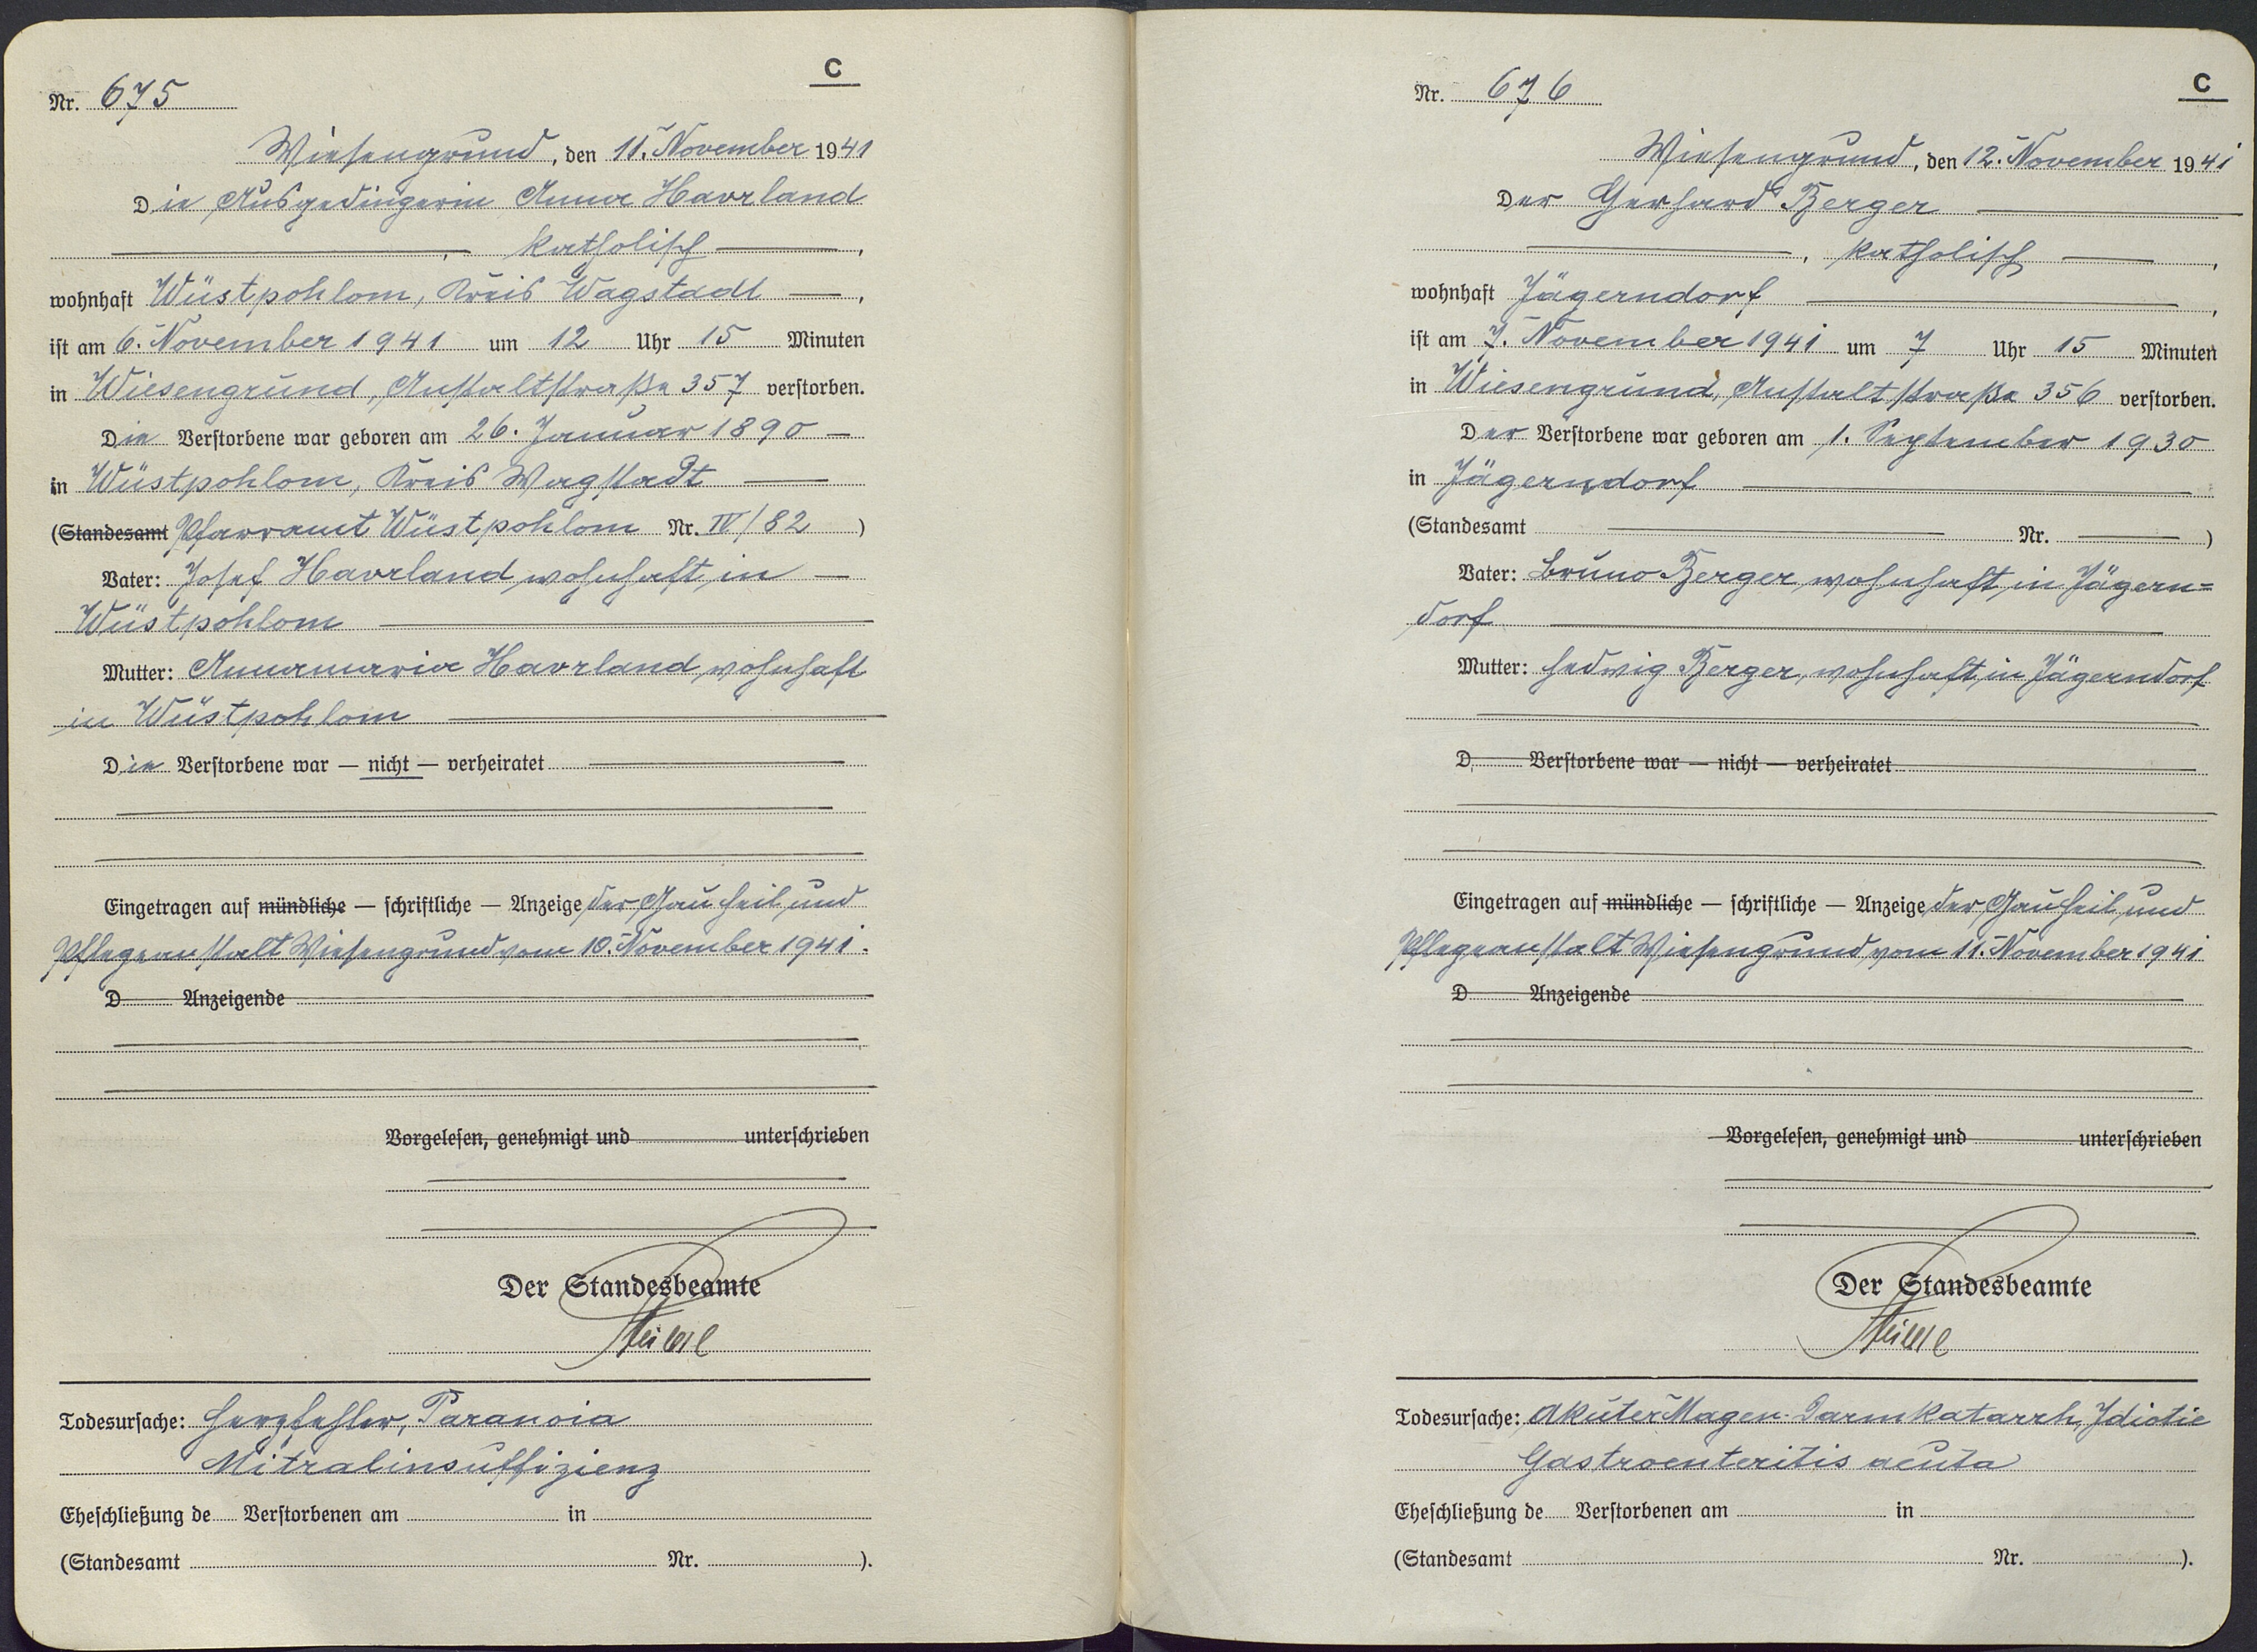 C
Nr. 675
Wiesengrund, den 11. November 1941
Die Ausgedingerin Anna Havrland
, katholisch ,
wohnhaft Wüstpohlom, Kreis Wagstadt ,
ist am 6. November 1941 um 12 Uhr 15 Minuten
in Wiesengrund, Anstaltstraße 357 verstorben.
Die Verstorbene war geboren am 26. Januar 1890
in Wüstpohlom, Kreis Wagstadt
(Standesamt Pfarramt Wüstpohlom Nr. IV/82 )
Vater: Josef Havrland, wohnhaft in
Wüstpohlom
Mutter: Annamaria Havrland, wohnhaft
in Wüstpohlom
Die Verstorbene war — nicht — verheiratet
Eingetragen auf mündliche — schriftliche — Anzeige der Gau heil und
Pflegeanstalt Wiesengrund vom 10. November 1941.
D Anzeigende
Vorgelesen, genehmigt und unterschrieben
Der Standesbeamte
Todesursache: Herzfehler, Paranoia
Mitralinsuffizienz
Eheschließung de Verstorbenen am in
(Standesamt Nr. ).
C
Nr. 676
Wiesengrund, den 12. November 1941
Der Gerhard Berger
, katholisch ,
wohnhaft Jägerndorf ,
ist am 7. November 1941 um 7 Uhr 15 Minuten
in Wiesengrund, Anstaltstraße 356 verstorben.
Der Verstorbene war geboren am 1. September 1930
in Jägerndorf
(Standesamt Nr. )
Vater: Bruno Berger, wohnhaft in Jägern=
dorf
Mutter: Hedwig Berger, wohnhaft in Jägerndorf
D Verstorbene war — nicht — verheiratet
Eingetragen auf mündliche — schriftliche — Anzeige der Gau heil und
Pflegeanstalt Wiesengrund vom 11. November 1941
D Anzeigende
Vorgelesen, genehmigt und unterschrieben
Der Standesbeamte
Todesursache: Akuter Magen-Darmkatarrh, Idiotie
Gastroenteritis acuta
Eheschließung de Verstorbenen am in
(Standesamt Nr. ).